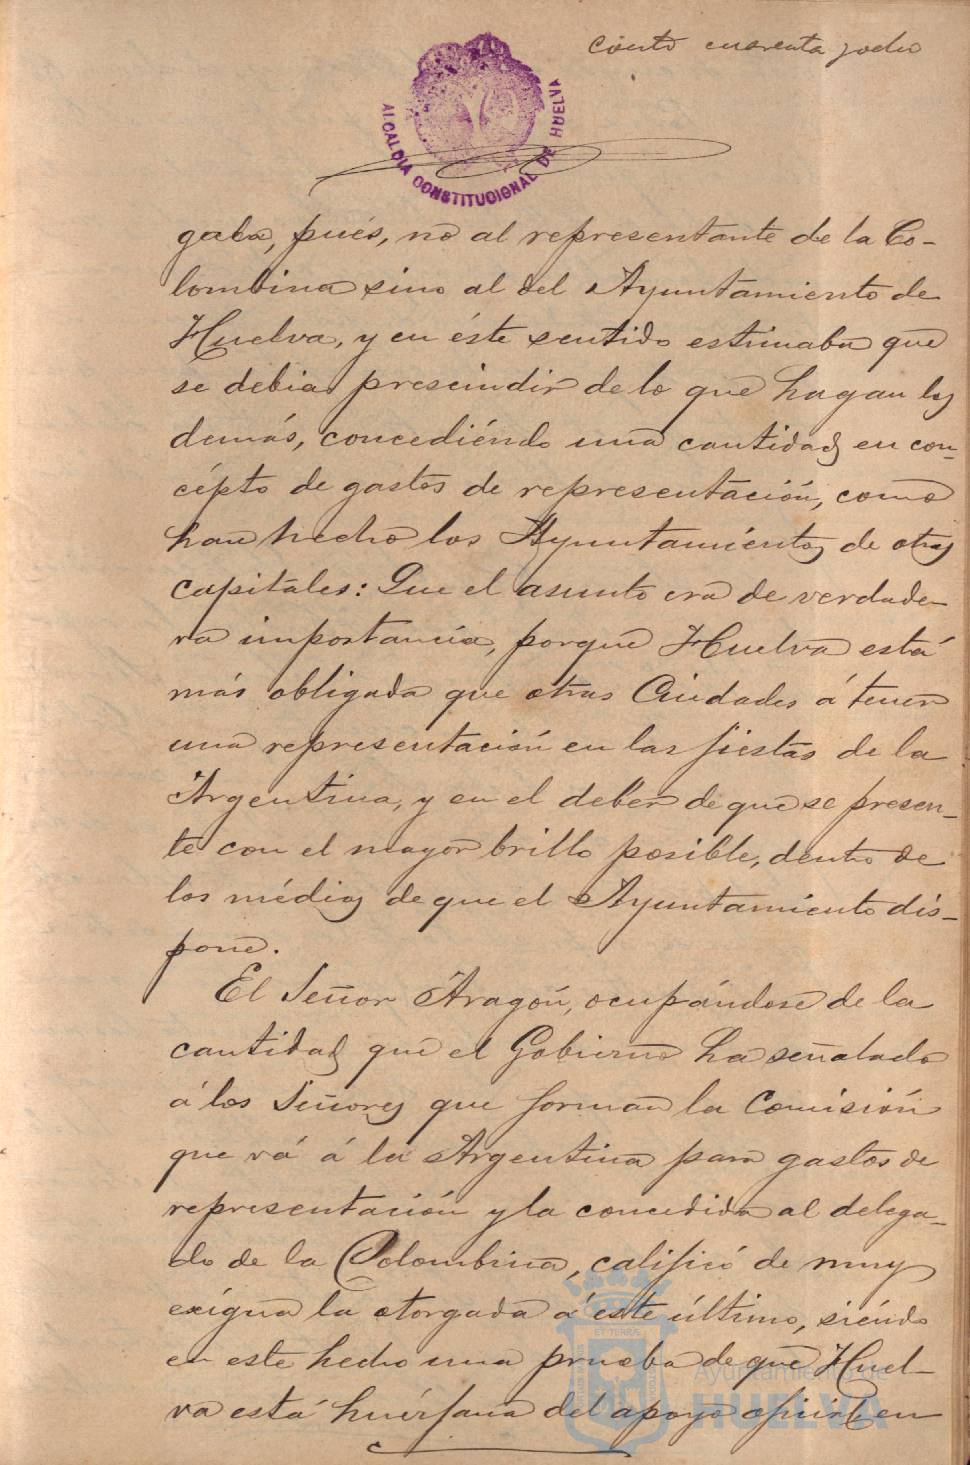 ciento cuarenta y ocho
ALCALDIA CONSTITUCIONAL DE HUELVA
gaba, pués, no al representante de la Co-
lombina sino al del Ayuntamiento de
Huelva, y en éste sentido estimaba que
se debia prescindir de lo que hagan los
demás, concediéndo una cantidad en con-
cépto de gastos de representación, como
han hecho los Ayuntamientos de otras
capitales: Que el asunto era de verdade-
ra importancia, porque Huelva está
más obligada que otras Ciudades á tener
una representación en las fiestas de la
Argentina, y en el deber de que se presen-
te con el mayor brillo posible, dentro de
los médios de que el Ayuntamiento dis-
pone.
El Señor Aragón, ocupándose de la
cantidad que el Gobierno ha señalado
á los Señores que forman la Comisión
que vá á la Argentina para gastos de
representación y la concedida al delega-
do de la Colombina, calificó de muy
exígua la otorgada á éste último, siéndo
en este hecho una prueba de que Huel-
va está huérfana del apoyo oficial en
Ayuntamiento de
HUELVA